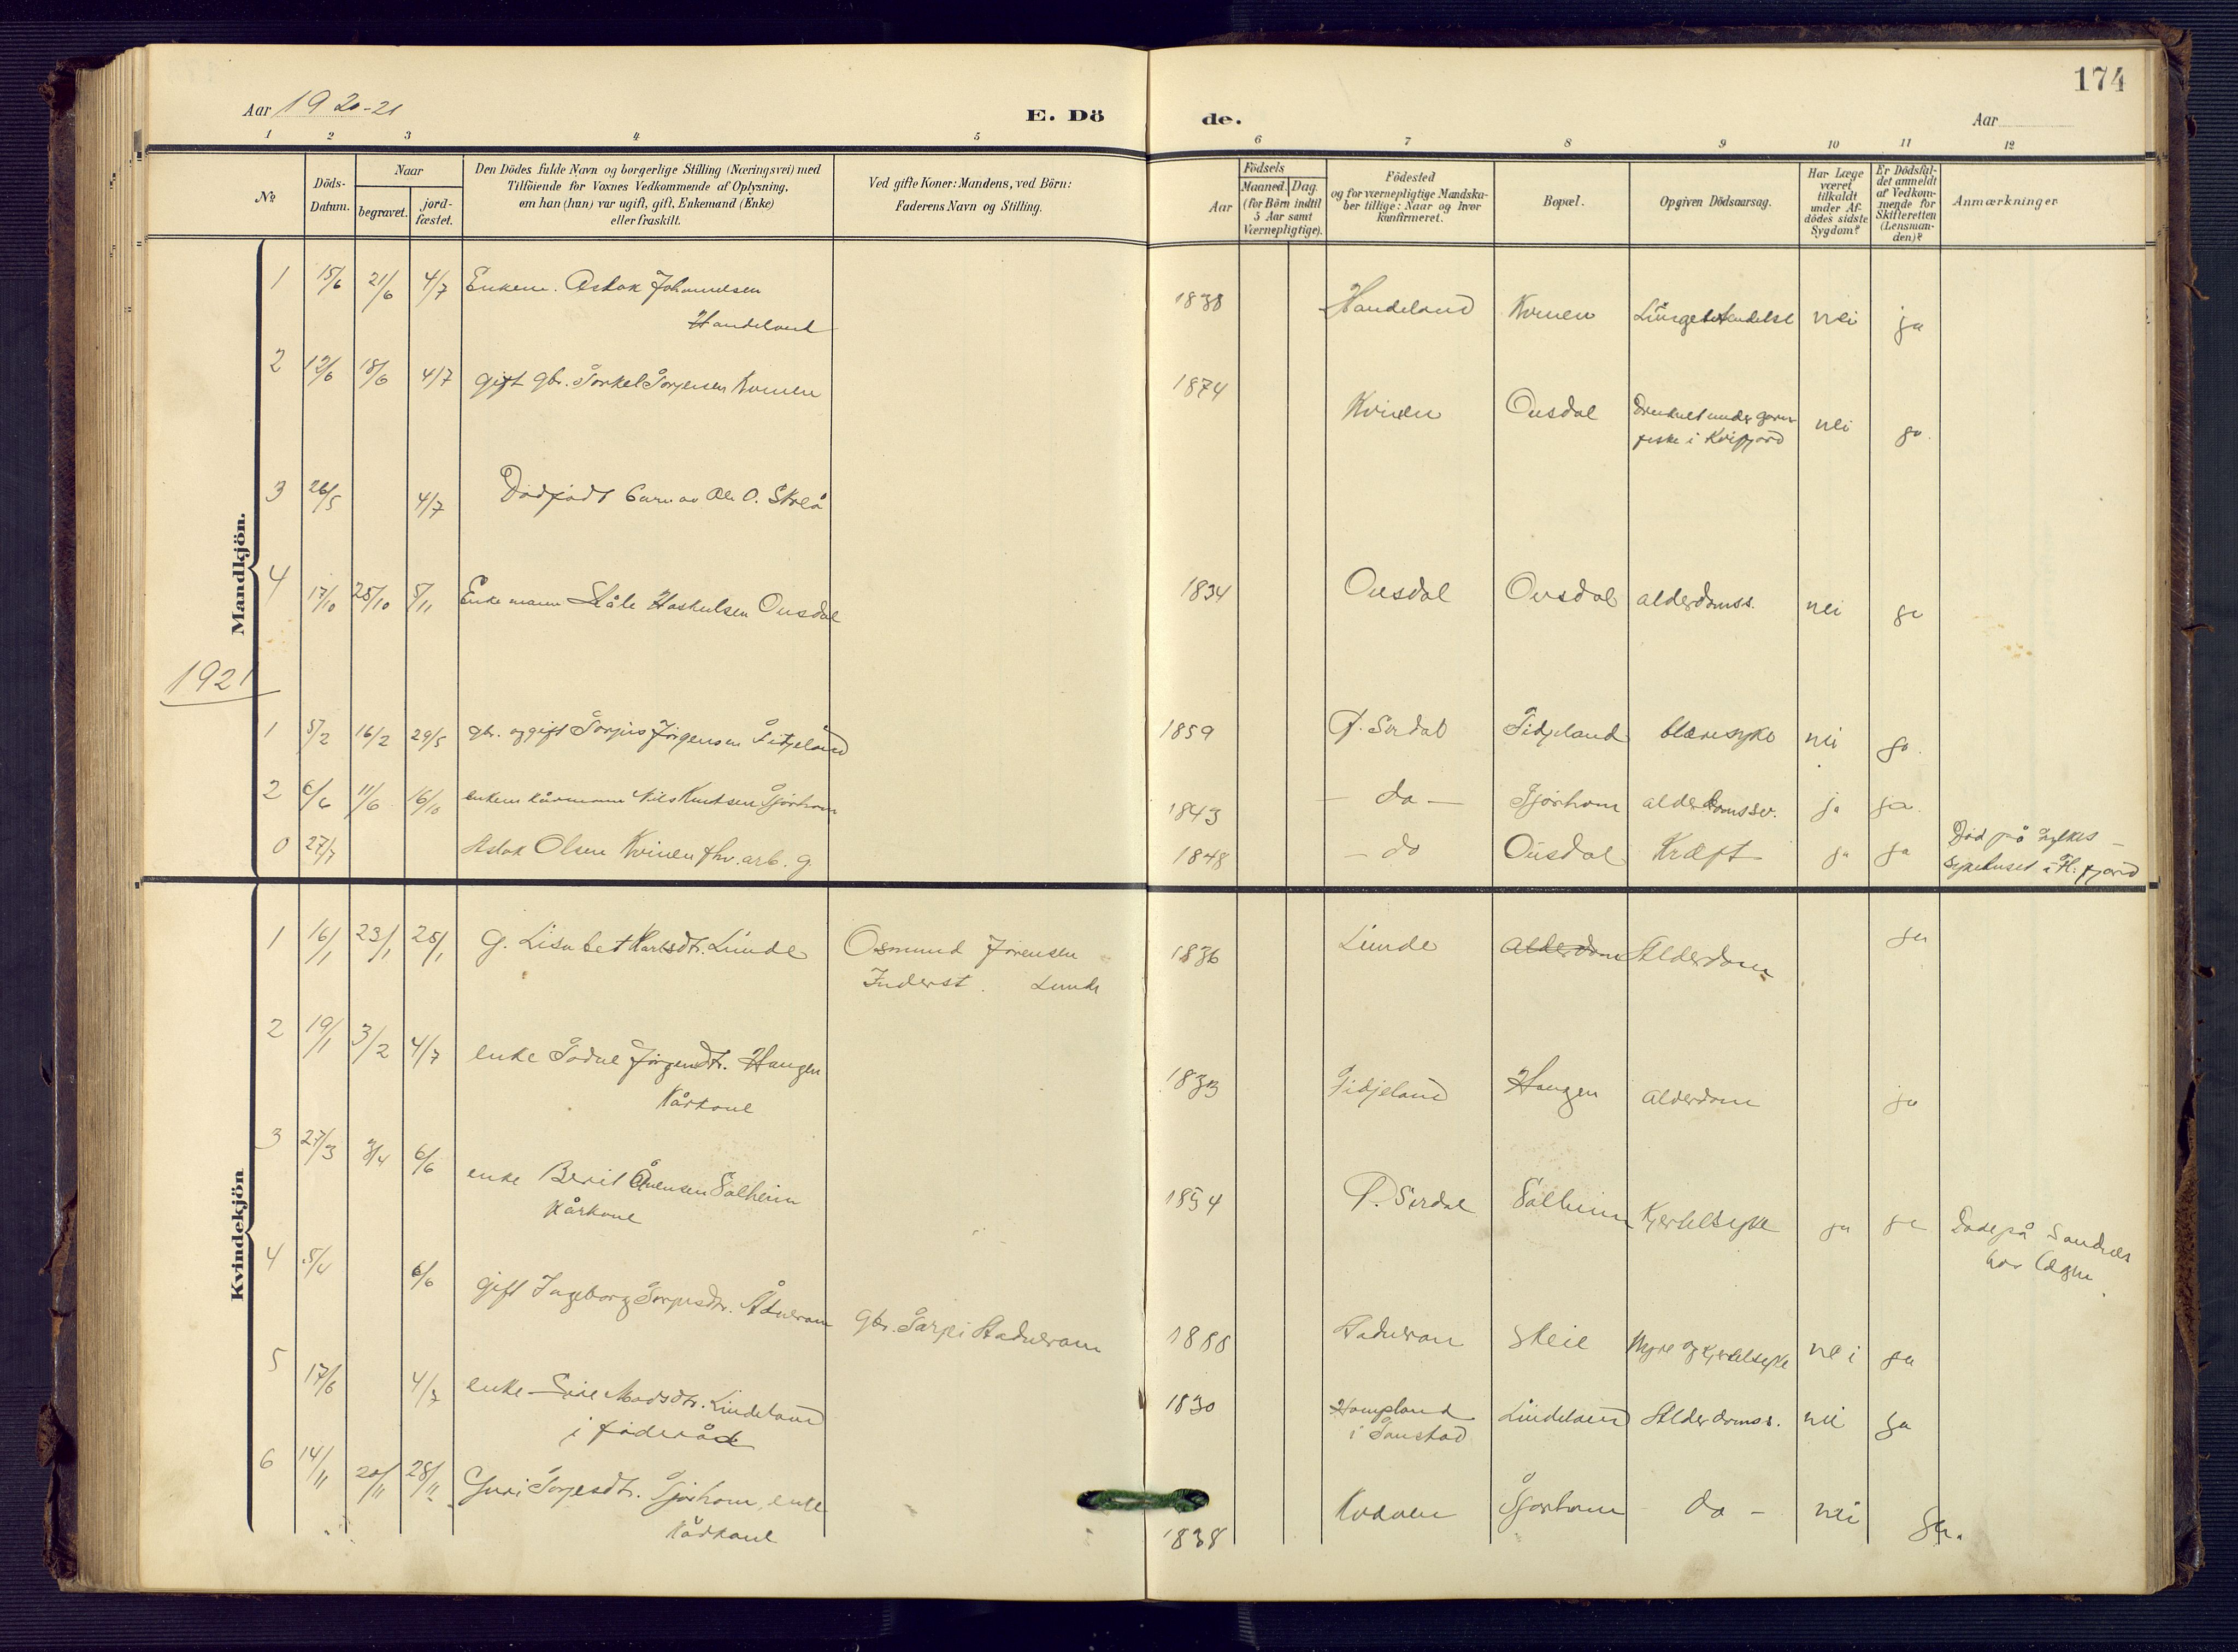 174
Aar 1920-21
E. Dö de.
Aar
1 2 3 4 5 6 7 8 9 10 11 12
No
Döds-Datum.
Naar
begravet.
jord-fæstet.
Den Dödes fulde Navn og borgerlige Stilling (Næringsvei) med
Tilföiende for Voxnes Vedkommende af Oplysning,
om han (hun) var ugift, gift, Enkemand (Enke)
eller fraskilt.
Ved gifte Koner: Mandens, ved Börn:
Faderens Navn og Stilling.
Födsels
Aar
Maaned. Dag.
(for Börn indtil
5 Aar samt
Værnepligtige).
Födested
og for værnepligtige Mandska-
ber tillige: Naar og hvor
konfirmeret.
Bopæl.
Opgiven Dödsaarsag.
Har Læge
været
tilkaldt
under Af-
dödes sidste
Sygdom?
Er Dödsfal-
det anmeldt
af Vedkom-
mende for
Skifteretten
(Lensman-
den)?
Anmærkninger
Mandkjön.
1 15/6 21/6 4/7 Enkem. Aslak Johannesen 1838 Handeland Kvinen Lungebetendelse nei ja
Handeland
2 12/6 18/6 4/7 gift gbr. Torkel Torjersen Kvinen 1874 Kvinen Ousdal Druknet under garn nei ja
fiske i Kvifjord
3 26/5 4/7 Dødfødt barn av Ole O. Skreå
4 17/10 25/10 5/11 Enkemann Ståle Haskulsen Ousdal 1834 Ousdal Ousdal alderdomss. nei ja
1921
1 5/2 16/2 29/5 gbr. og gift Torjus Jørgensen Tidjeland 1859 Ø. Sirdal Tidjeland blæresyke nei ja
2 6/6 11/6 16/10 enkem kårmann Nils Knutsen Tjørhom 1843 — do — Tjørhom alderdomssv. ja ja
0 27/7 Aslak Olsen Kvinen fhv. arb. g. 1848 — do Ousdal Kræft ja ja Død på fylkes-
sykehuset i Fl. fjord
Kvindekjön
1 16/1 23/1 25/1 g. Lisabet Karlsdtr. Lunde Osmund Jørensen 1836 Lunde Alderdom Alderdom ja
Inderst. Lunde
2 19/1 3/2 4/7 enke Todne Jørgensdtr. Haugen 1833 Tidjeland Haugen Alderdom ja
Kårkone
3 27/3 3/4 6/6 enke Berit Ånensen Solheim 1854 Ø. Sirdal Solheim Kjertelsyke ja ja Døde på Sandnes
Kårkone
hos lægen
4 5/4 6/6 gift Ingeborg Torjusdtr. Ådneram gbr. Tarjei Aadneram 1888 Aadneram Skeie og kjertelsyke nei ja
5 17/6 4/7 enke Siri Madsdtr. Lindeland 1830 Hompland Lindeland Alderdomss. nei ja
i føderåd
i Tonstad
6 14/11 20/11 28/11 Guri Torjesdtr. Tjørhom, enke 1838 Kvæven Tjørhom — do — nei ja.
Kårkone